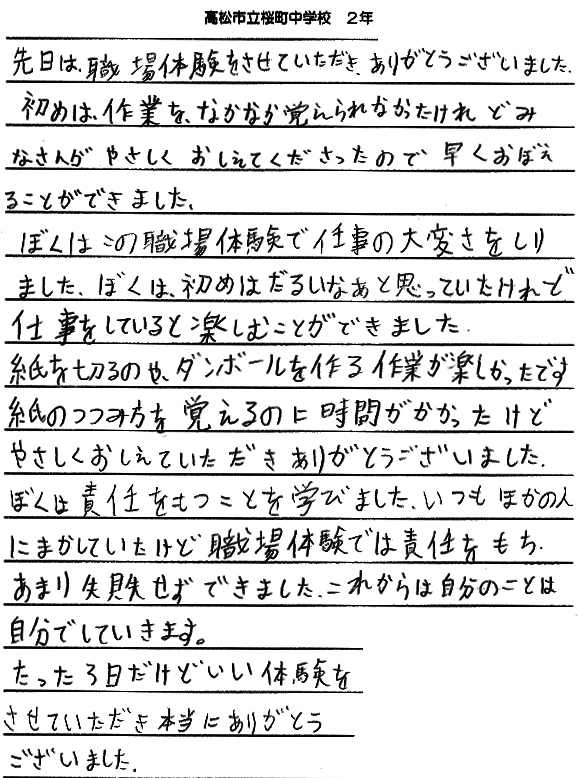 高松市立桜町中学校　2年
先日は、職場体験をさせていただき、ありがとうございました。
初めは、作業を、なかなか覚えられなかったけれどみ
なさんが やさしく おしえてくださったので 早くおぼえ
ることができました。
ぼくはこの職場体験で仕事の大変さをしり
ました。ぼくは、初めはだるいなぁと思っていたけれど
仕事をしていると楽しむことができました。
紙を切るのや、ダンボールを作る作業が楽しかったです
紙のつつみ方を覚えるのに時間がかかったけど
やさしくおしえていただきありがとうございました。
ぼくは責任をもつことを学びました。いつもほかの人
にまかしていたけど職場体験では責任をもち、
あまり失敗せずできました。これからは自分のことは
自分でしていきます。
たった3日だけどいい体験を
させていただき本当にありがとう
ございました。